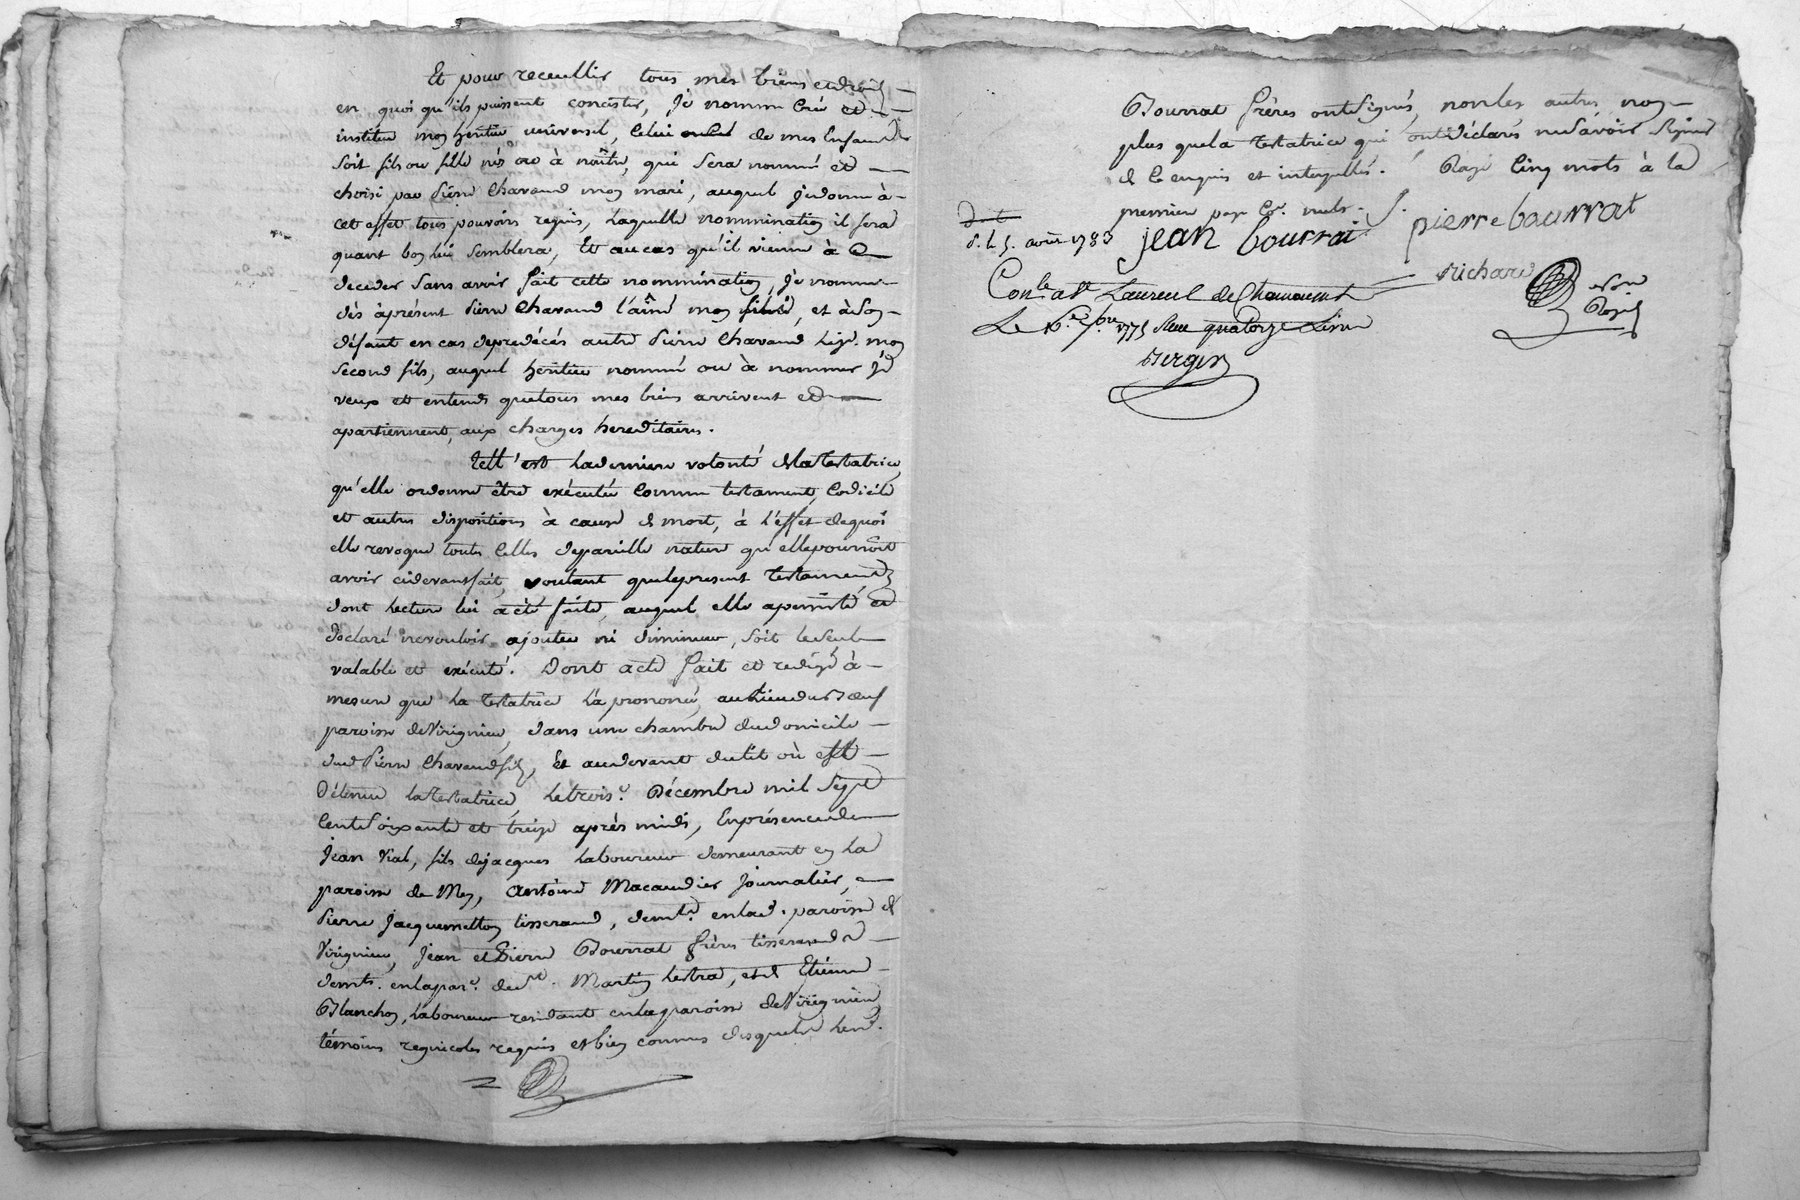 Et pour receullir tous mes biens et droits
en quoi qu'ils puissent concister, je nomme crée et
institue mon heritier universel, celui ou celle de mes Enfans
soit fils ou fille nés ou à naître, qui sera nommé et
choisi par Pierre Chavand mon mari, auquel je donne à
cet effet tous pouvoirs requis, laquelle nommination il fera
quant bon lui semblera, Et au cas qu'il vienne à
deceder sans avoir fait cette nommination, je nomme
dès àprésent Pierre Chavand l'aîné mon fils, et à son
défaut en cas de predécés autre Pierre Chavand mon
second fils, auquel heritier nommé ou à nommer je
veux et entends que tous mes biens arrivent et
apartiennent, aux charges hereditaires.
Tell'est la derniere volonté de la Testatrice,
qu'elle ordonne être exécutée comme testament, codicile
et autres dispositions à cause de mort, à l'effet de quoi
elle revoque toutes celles de pareille nature qu'elle pourroit
avoir cidevant fait, voulant que le present Testament
dont lecture lui a été faite, auquel elle a persisté et
declaré ne vouloir ajouter ni diminuer, soit le seul
valable et exécuté. Dont acte fait et redigé à
mesure que la Testatrice l'a prononcé, au lieu du
paroisse de Virignieu, dans une chambre du domicile
dud Pierre Chavand fils, et audevant du lit où est
détenue la Testatrice, le trois.e Décembre mil sept
cent soixante et treize après midi, En présence de
Jean Vial, fils de jacques laboureur demeurant en la
paroisse de Mey, Antoine Macaudier journalier,
Pierre Jacquemetton tisserand, demt. en lad. paroisse de
Virignieu, Jean et Pierre Bourrat frères tisserands
demts. en la par.e de St. Martin lestra, et d'Etienne
Blanchon, laboureur residant en la paroisse de Virignieu
témoins regnicoles requis et bien connus desquels lesd.
Bourrat frères ont signés, non les autres non
plus que la Testatrice qui ont déclarés ne savoir signer
de ce enquis et interpellés. Rayé cinq mots à la
premiere page nuls.
août 1783 jean bourrat pierre bourrat
Richard
Conlé a St Laurent de Chamousset
Le 1775 Reçu quatorze Livres
Berger